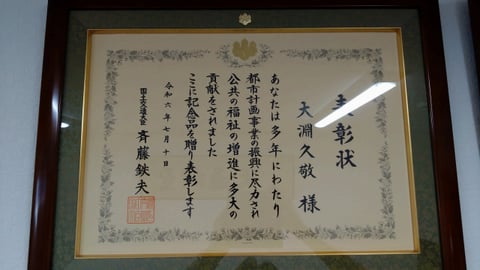 表彰状
大淵久敬 様
あなたは多年にわたり
都市計画事業の振興に尽力され
公共の福祉の増進に多大の
貢献をされました
ここに記念品を贈り表彰します
令和六年七月十日
国土交通大臣 斉藤鉄夫